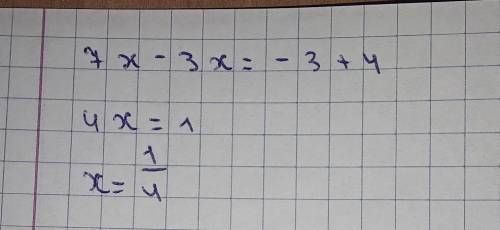 7x - 3x = - 3 + 4
4x = 1
x = 1/4